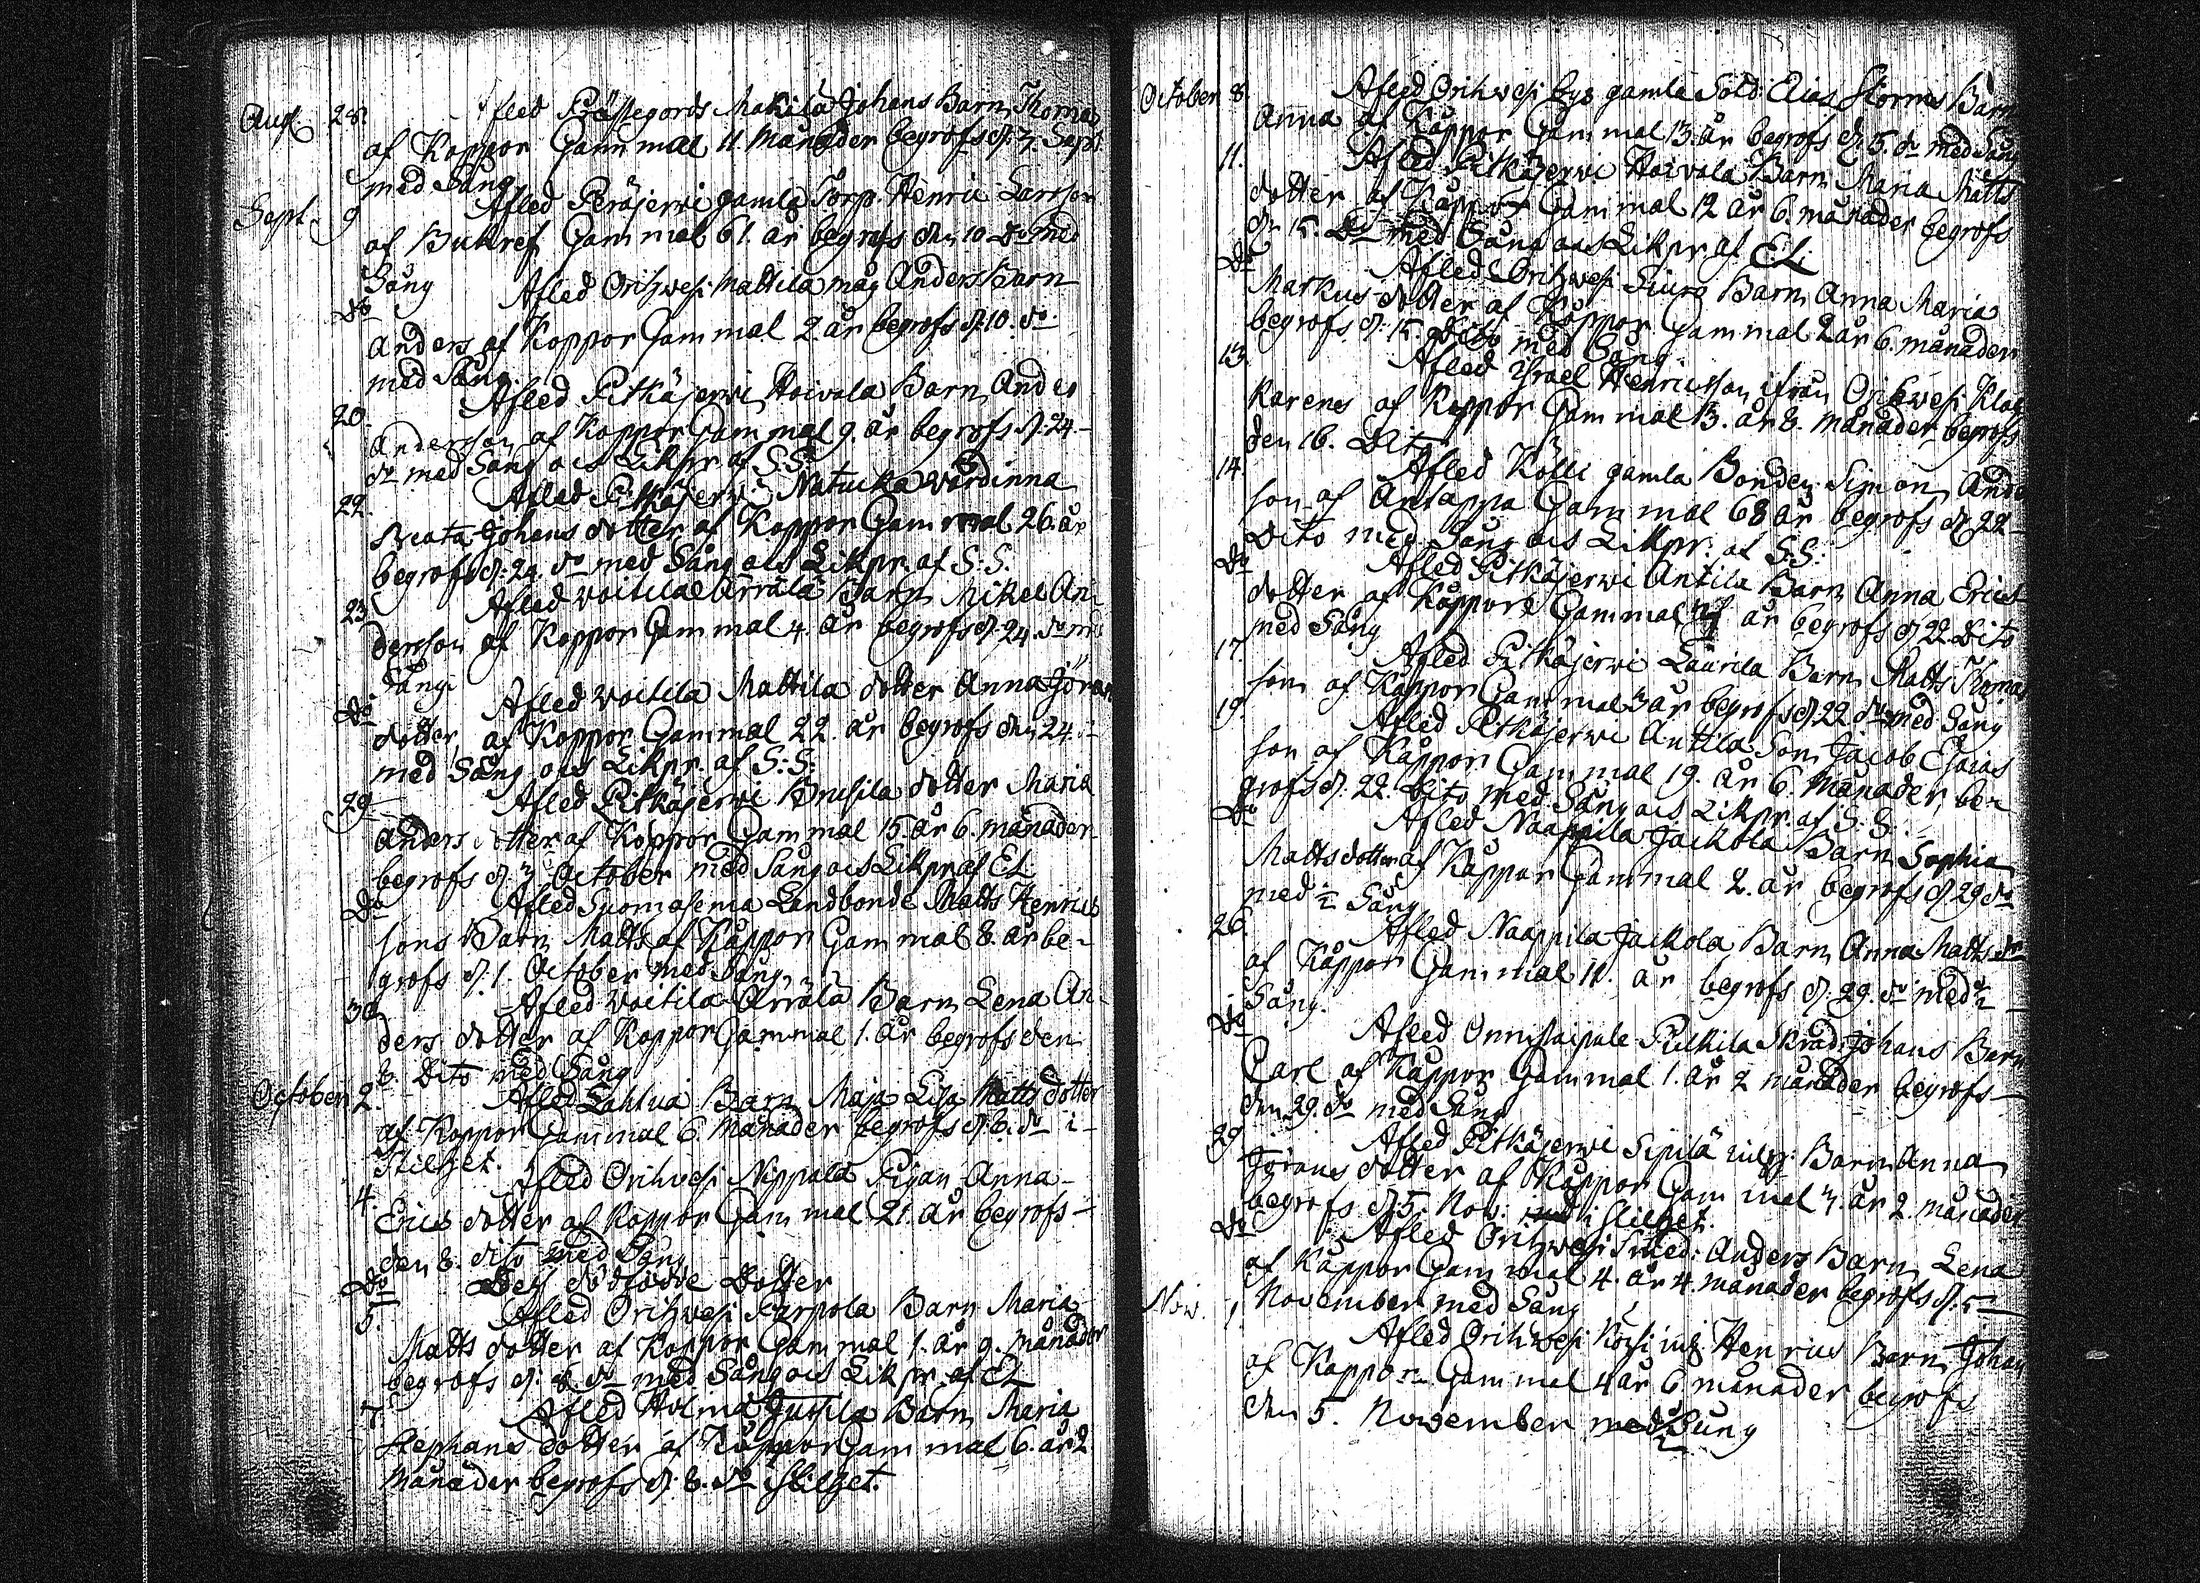 Aug. 28. Afled Prästegårds Makila Johans Barn Thomas
af Koppor Gammal 11. Månader begrofs d. 7. Sept.
med Sång
Sept. 9 Afled Peräjerwi gamla Torp. Henric Larsson
af Bukref Gammal 61. år begrofs den 10 do med
Sång
do Afled Orihwesi Mattila måg Anders Barn
Anders af Koppor Gammal 2. år begrofs d. 10. do
med Sång.
20. Afled Pitkäjerwi Hoivala Barn Anders
Andersson af Koppor Gammal 9. år begrofs d. 24.
do med Sång ocs Likpr. af S.S.
22. Afled Pitkäjerwi Natucka Wärdinna
Beata Johans dotter af Koppor Gammal 26. år
begrofs d. 24. do med Sång ocs Likpr. af S:S.
23. Afled Voitila Ärrälä Barn Mikel An-
dersson af Koppor Gammal 4. år begrofs d. 24. do med
Sång.
Do Afled Voitila Mattila dotter Anna Göran
dotter af Koppor Gammal 22. år begrofs den 24.
med Sång ocs Likpr. af S:S:
29. Afled Pitkäjerwi Brusila dotter Maria
Anders dotter af Koppor Gammal 15. år 6. månader
begrofs d. October med Sång ocs Likpr af EL
Do Afled Suomasema Landbonde Matts Henrics
sons Barn Matts af Kåppor Gammal 8. år be-
grofs d. 1. October med Sång.
30. Afled Voitila Ärrälä Barn Lena An-
ders dotter af Koppor Gammal 1. år begrofs den
8. Dito med Sång
October 2. Afled Lahtua Barn Maja Lisa Matts dotter
af Koppor Gammal 6 Månader begrofs d. 8. do i
Stilhet.
4. Afled Orihvesi Nippala Pigan Anna
Erics dotter af Koppor Gammal 21. år begrofs
den 8. dito med Sång
Do Dess dödfödde Dotter
5. Afled Orihwesi Karpola Barn Maria
Matts dotter af Koppor Gammal 1. år 9. månader
begrofs d. 8. do med Sång ocs Likpr. af EL
7. Afled Holma Jussila Barn Maria
Stephans dotter af Kåppor Gammal 6. år 2
Månader begrofs d. 8. do i Stilhet.
October 8. Afled Orihwesi bys gamla Sold: Elias Storms Barn
Anna af Kåppor Gammal 13. år begrofs d. 15. do med Sång
11. Afled Pitkäjerwi Hoivala Barn Maria Matts
dotter af Kåppor Gammal 12 år 6. månader begrofs
d. 15. Do med Sång ocs Likpr af EL.
Do Afled Orihwesi Siura Barn Anna Maria
Markus dotter af Kåppor Gammal 2 år 6. månader
begrofs d. 15. Dito med Sång.
13. Afled Israel Henricsson ifrån Orihwesi Kloc
karens af Koppor Gammal 13. år 8. Månader begrofs
den 16. Dito
14. Afled Kölli gamla Bonden Simon Anders
son af Gammal 68 år begrofs d. 22
Dito med Sång ocs Likpr. af S.S:
Do Afled Pitkäjerwi Antila Barn Anna Erics
dotter af Kåppor Gammal år begrofs d. 22. Dito
med Sång
17. Afled Pitkäjerwi Laurila Barn Matts Thomas
son af Kåppor Gammal 3 år begrofs d. 22 do med Sång
19. Afled Pitkäjerwi Antila Son Jacob Esaias
son af Kåppor Gammal 19. år 6. Månader be-
grofs d. 22. Dito med Sång ocs Likpr. af S.S.
Do Afled Naappila Jackola Barn Sophia
Matts dotter af Kåppor Gammal 2. år begrofs d. 29 do
med ½ Sång
26. Afled Naappila Jackola Barn Anna Matts dr
af Kåppor Gammal 11. år begrofs d. 29. do med ½
Sång.
Do Afled Onnistaipale Pulkila Skräd. Johans Barn
Carl af Kåppor Gammal 1. år 2 månader begrofs
den 29. do med Sång
29. Afled Pitkäjerwi Sipilä inhy: Barn Anna
Görans dotter af Kåppor Gammal år 2. månader
begrofs d. 5. Nov. i Stilhet.
Do Afled Orihwesi Smed: Anders Barn Lena
af Kåppor Gammal 4. år 4. månader begrofs d. 5
November med Sång
Nov. 1. Afled Orihwesi inh. Henrics Barn Johan
af Koppor Gammal 4 år 6 månader begrofs
den 5. November med ½ Sång